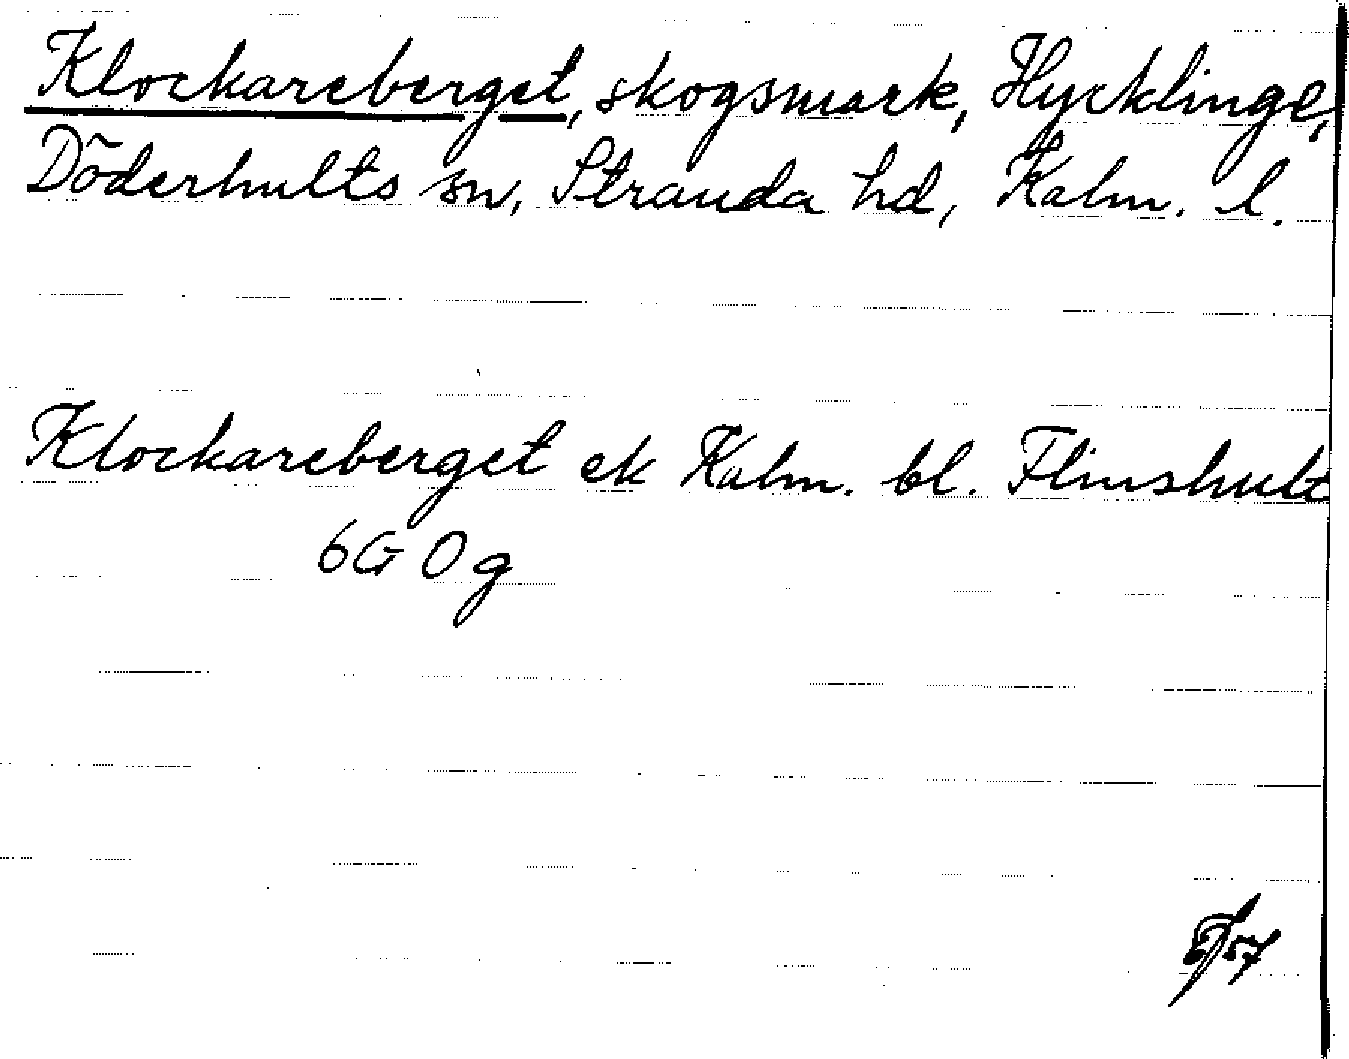 Klockareberget, skogsmark, Hycklinge,
Döderhults sn, Stranda hd, Kalm. l.
Klockareberget ek Kalm. bl. Flinshult
6G 0g
57